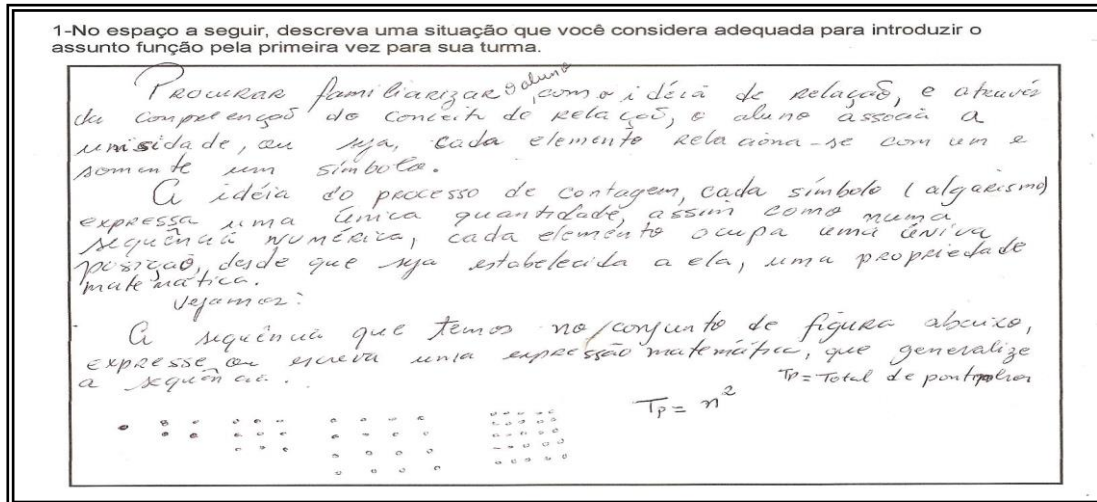 1-No espaço a seguir, descreva uma situação que você considera adequada para introduzir o
assunto função pela primeira vez para sua turma.
Procurar familiarizar o aluno, com a idéia de relação, e através
da compreenção do conceito de relação, o aluno associa a
unisidade, ou seja, cada elemento relaciona-se com um e
somente um símbolo.
A idéia do processo de contagem, cada símbolo (algarismo)
expressa uma única quantidade, assim como numa
sequência numérica, cada elemento ocupa uma única
posição, desde que seja estabelecida a ela, uma propriedade
matemática.
Vejamos:
A sequência que temos no conjunto de figura abaixo,
expresse ou escreva uma expressão matemática, que generalize
a sequência.
Tp = Total de
Tp = n²